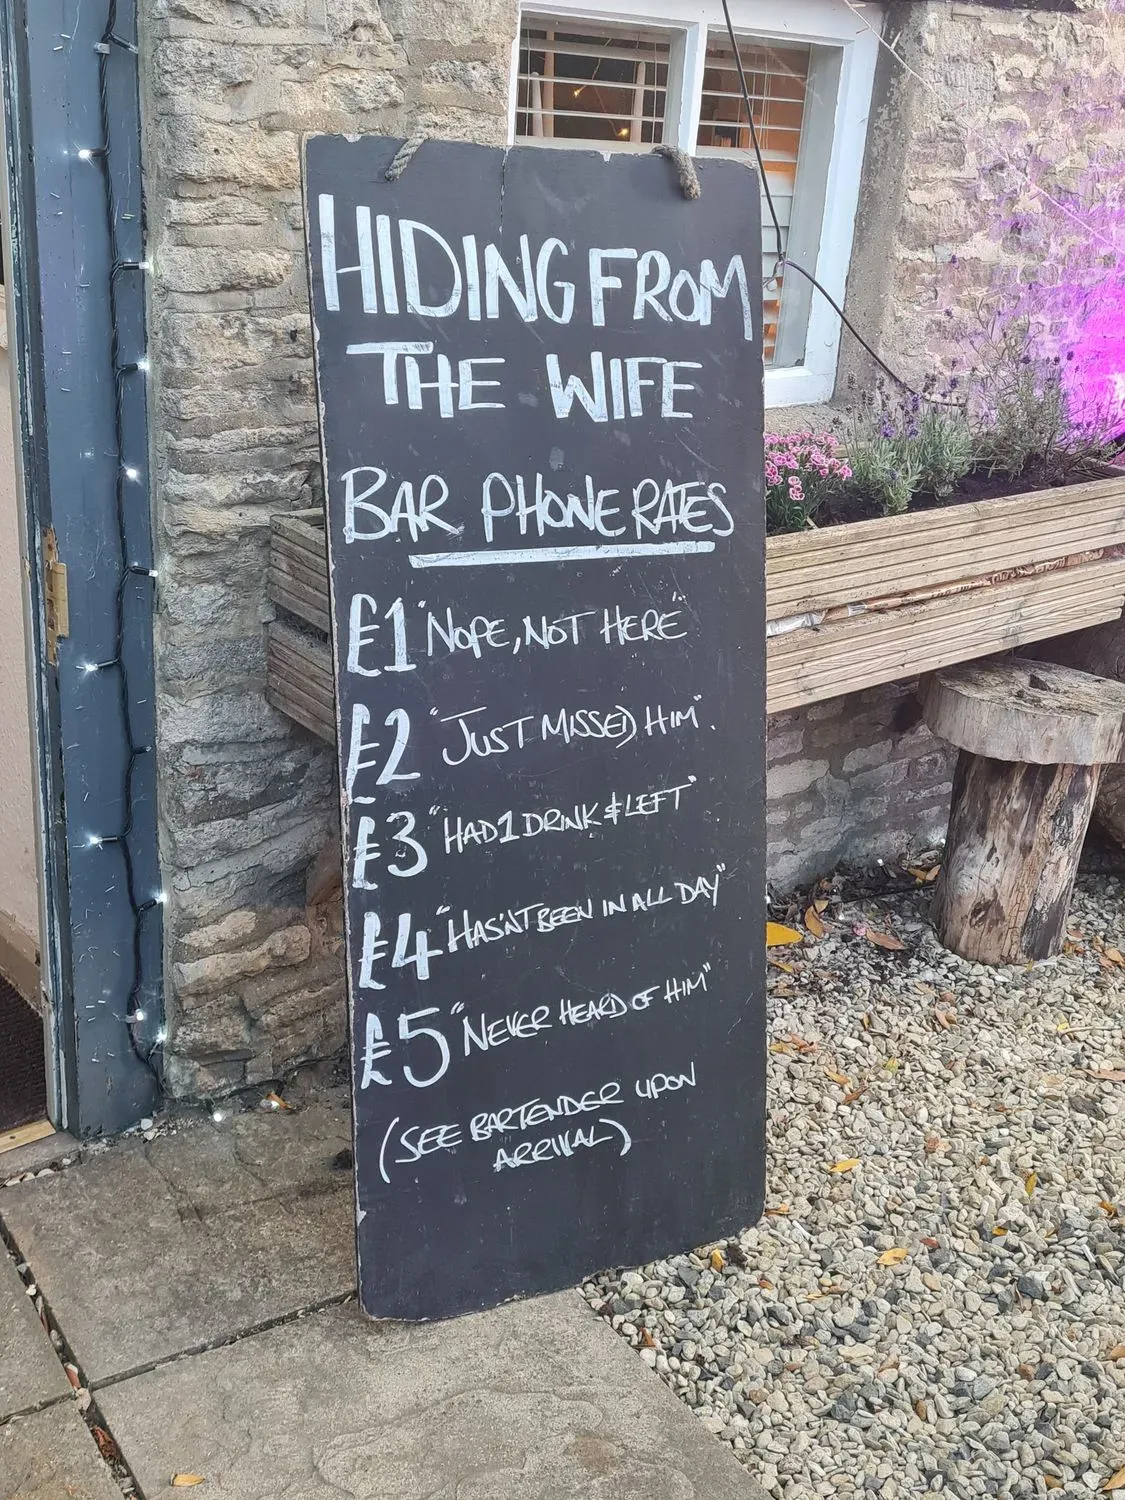 HIDING FROM
THE WIFE
BAR PHONE RATES
£1 "NOPE, NOT HERE"
£2 "JUST MISSED HIM".
£3 "HAD 1 DRINK & LEFT"
£4 "HASN'T BEEN IN ALL DAY"
£5 "NEVER HEARD OF HIM"
(SEE BARTENDER UPON
ARRIVAL)